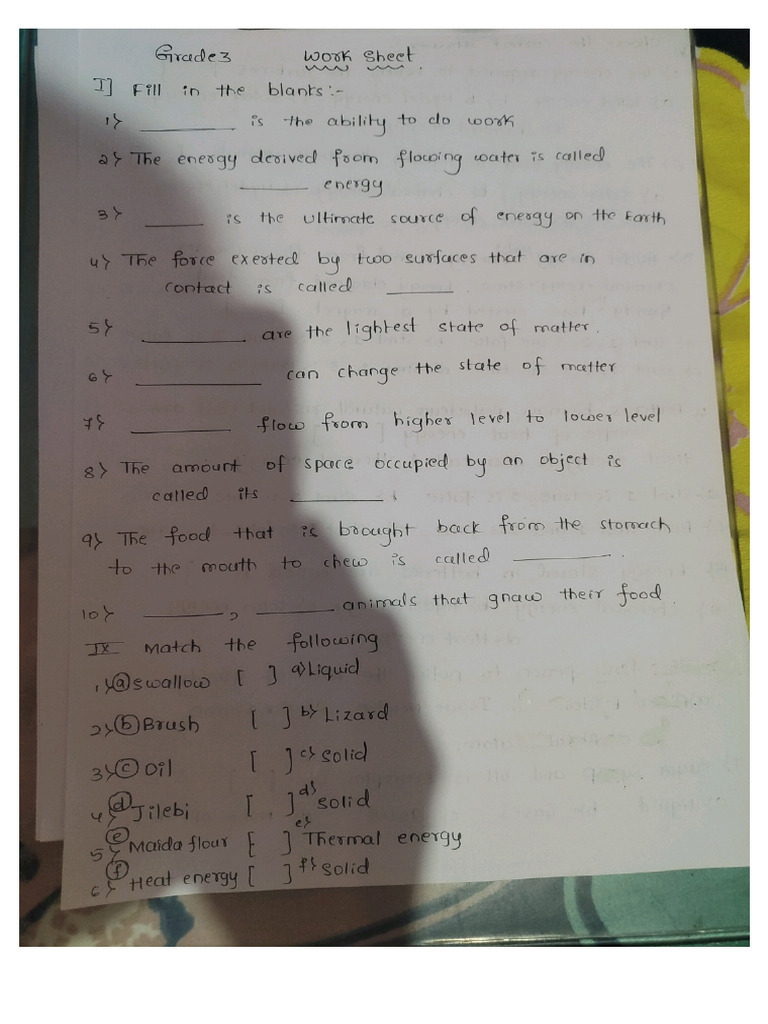 Grade 3 Work Sheet.
I] Fill in the blanks:-
1) ________ is the ability to do work
2) The energy derived from flowing water is called
______ energy
3) _____ is the ultimate source of energy on the Earth
4) The force exerted by two surfaces that are in
contact is called ______.
5) _________ are the lightest state of matter.
6) ___________ can change the state of matter
7) _________ flow from higher level to lower level
8) The amount of space occupied by an object is
called its ________.
9) The food that is brought back from the stomach
to the mouth to chew is called ________.
10) _______, _______ animals that gnaw their food.
II Match the following
1) a swallow [ ] a) Liquid
2) b Brush [ ] b) Lizard
3) c Oil [ ] c) Solid
4) d Jilebi [ ] d) solid
5) e Maida flour [ ] e) Thermal energy
6) f Heat energy [ ] f) Solid